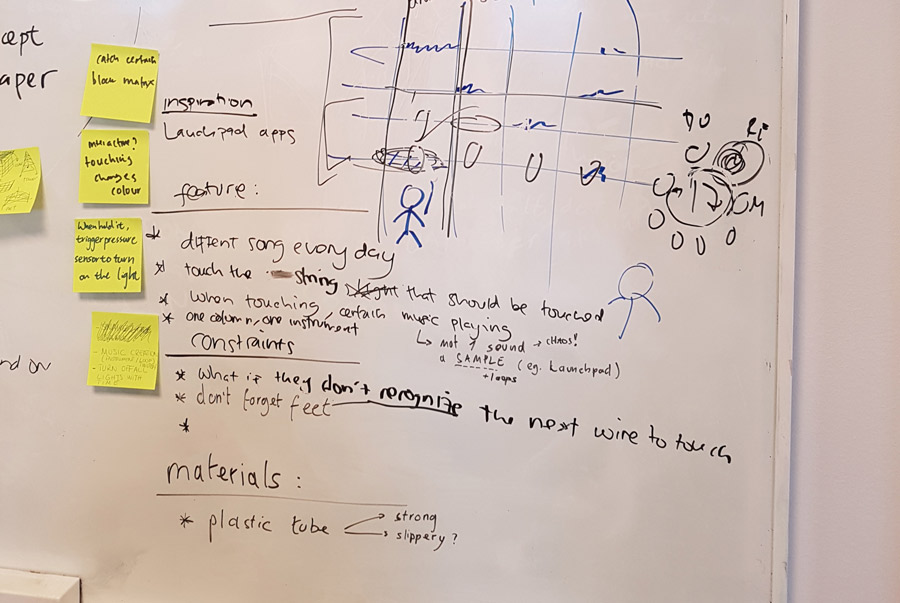 cept
aper
catch certain
block matrix
interactive?
touching
changes
colour
When hold it,
trigger pressure
sensor to turn
on the light
- MUSIC CREATION
- TURN OFF ALL
LIGHTS WITH
nd on
inspiration
Lauchpad apps
feature:
* different song every day
* touch the string light that should be touched
* when touching certain music playing
↳ not 1 sound → CHAOS!
a SAMPLE (eg. Launchpad)
+loops
* one column, one instrument
constraints
* what if they don't recognize the next wire to touch
* don't forget feet
*
materials:
* plastic tube → strong
→ slippery?
DO
Ri
M